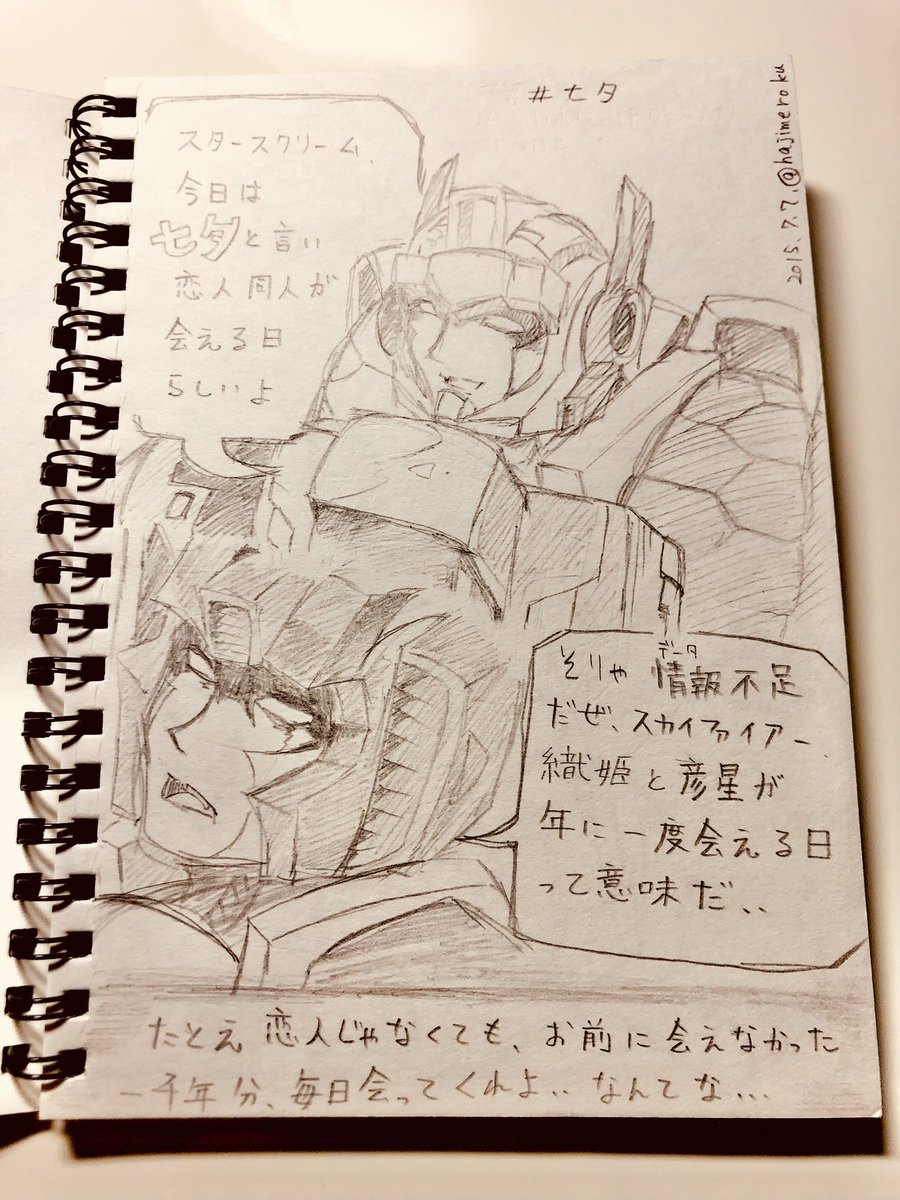 #七夕
2015.7.7.@hajimeroku
スタースクリーム、
今日は
七夕と言い
恋人同人が
会える日
らしいよ
データ
そりゃ 情報不足
だぜ、スカイファイアー、
織姫と彦星が
年に一度会える日
って意味だ..
たとえ恋人じゃなくても、お前に会えなかった
一千年分、毎日会ってくれよ..なんてな...